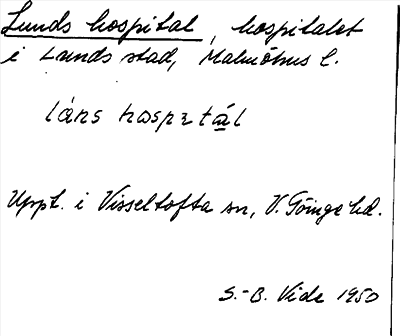 Lunds hospital, hospitalet
i Lunds stad, Malmöhus l.
láns hospɪtál
Uppt. i Visseltofta sn, V. Göinge hd.
S.-B. Vide 1950